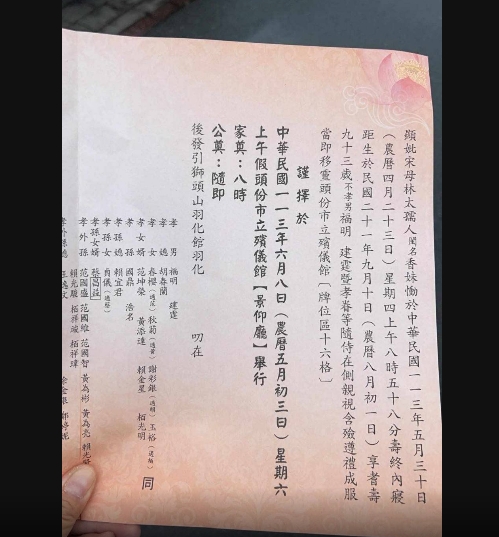 顯妣宋母林太孺人閨名香妹慟於中華民國一一三年五月三十日
(農曆四月二十三日)星期四上午八時五十八分壽終內寢
距生於民國二十一年九月十日(農曆八月初一日)享耆壽
九十三歲不孝男福明 建霆暨孝眷等隨侍在側親視含殮遵禮成服
當即移靈頭份市立殯儀館〔牌位區十六格〕
謹擇於
中華民國一一三年六月八日(農曆五月初三日)星期六
上午假頭份市立殯儀館【景仰廳】舉行
家奠:八時
公奠:隨即
後發引獅頭山羽化館羽化
叨在
孝男 福明 建霆
孝媳 胡春蘭
孝女 春櫻 秋菊 謝彩銀 玉裕
孝女婿 范坤榮 黃添達 賴金星 栢光明
孝孫 國鼎 浩名
孝孫媳 賴宜君
孝孫女 貞儀
孝孫女婿 蔡昌益
孝外孫 范國盛 范國維 范國智 黃為彬 黃為亮
賴光駿 栢祥峻 栢祥瑋
孝外孫媳
同